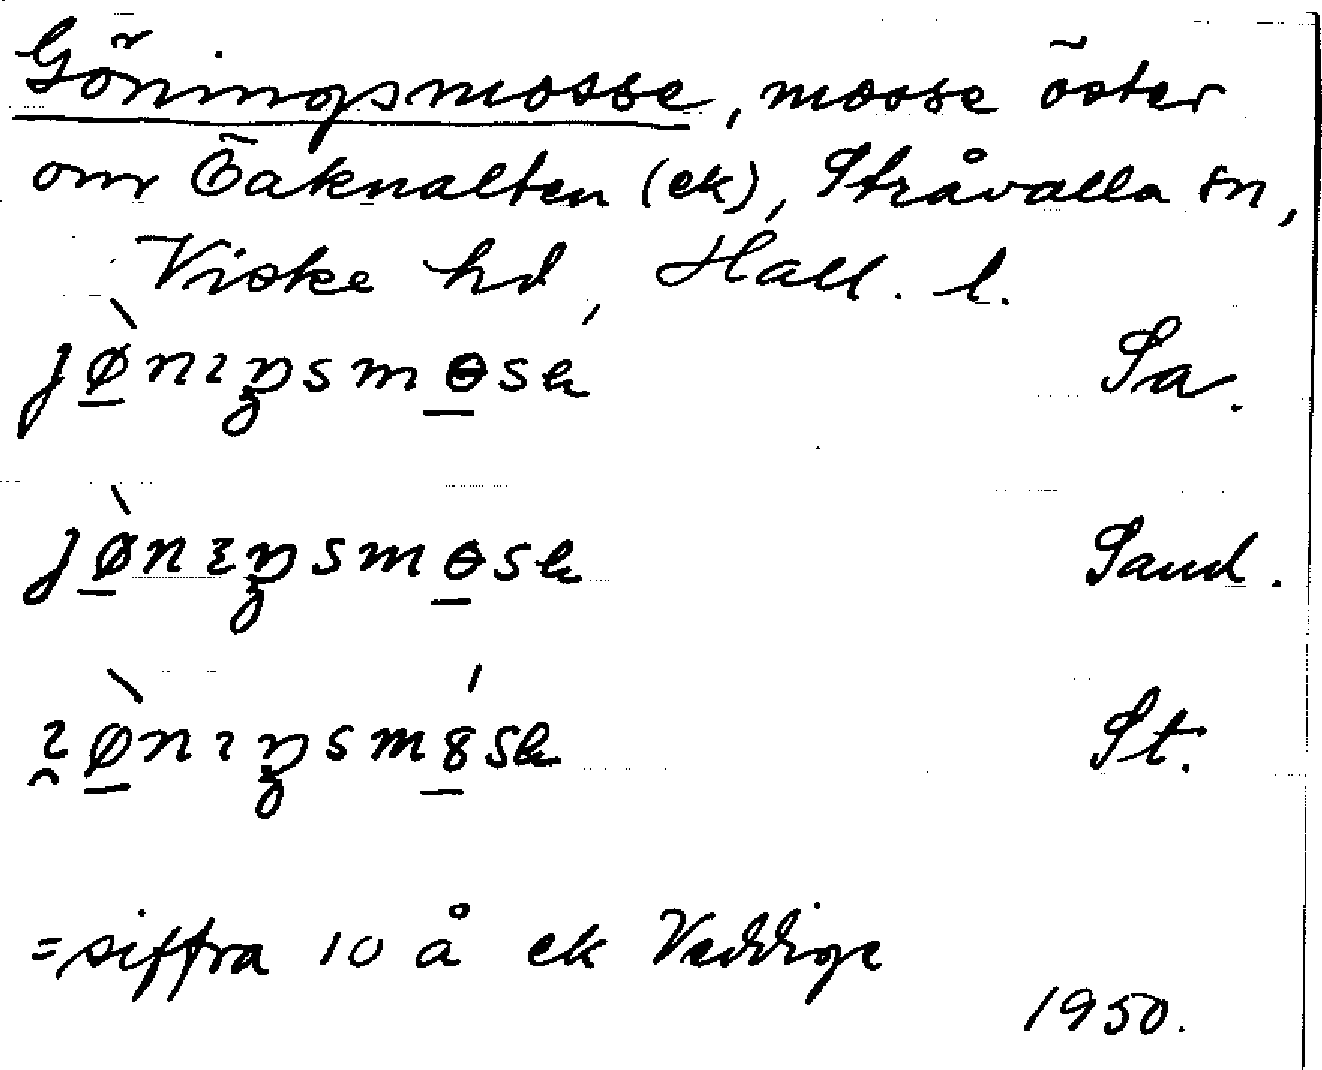 Göningsmosse, mosse öster
om Öaknalten (ek), Stråvalla sn,
Viske hd, Hall. l.
jø̠̀nıŋsmɵ̠sé Sa.
jø̠̀nıŋsmɵ̠se Sand.
ı̯ø̠̀nıŋsm8̠́se St.
=siffra 10 å ek Veddige
1950.